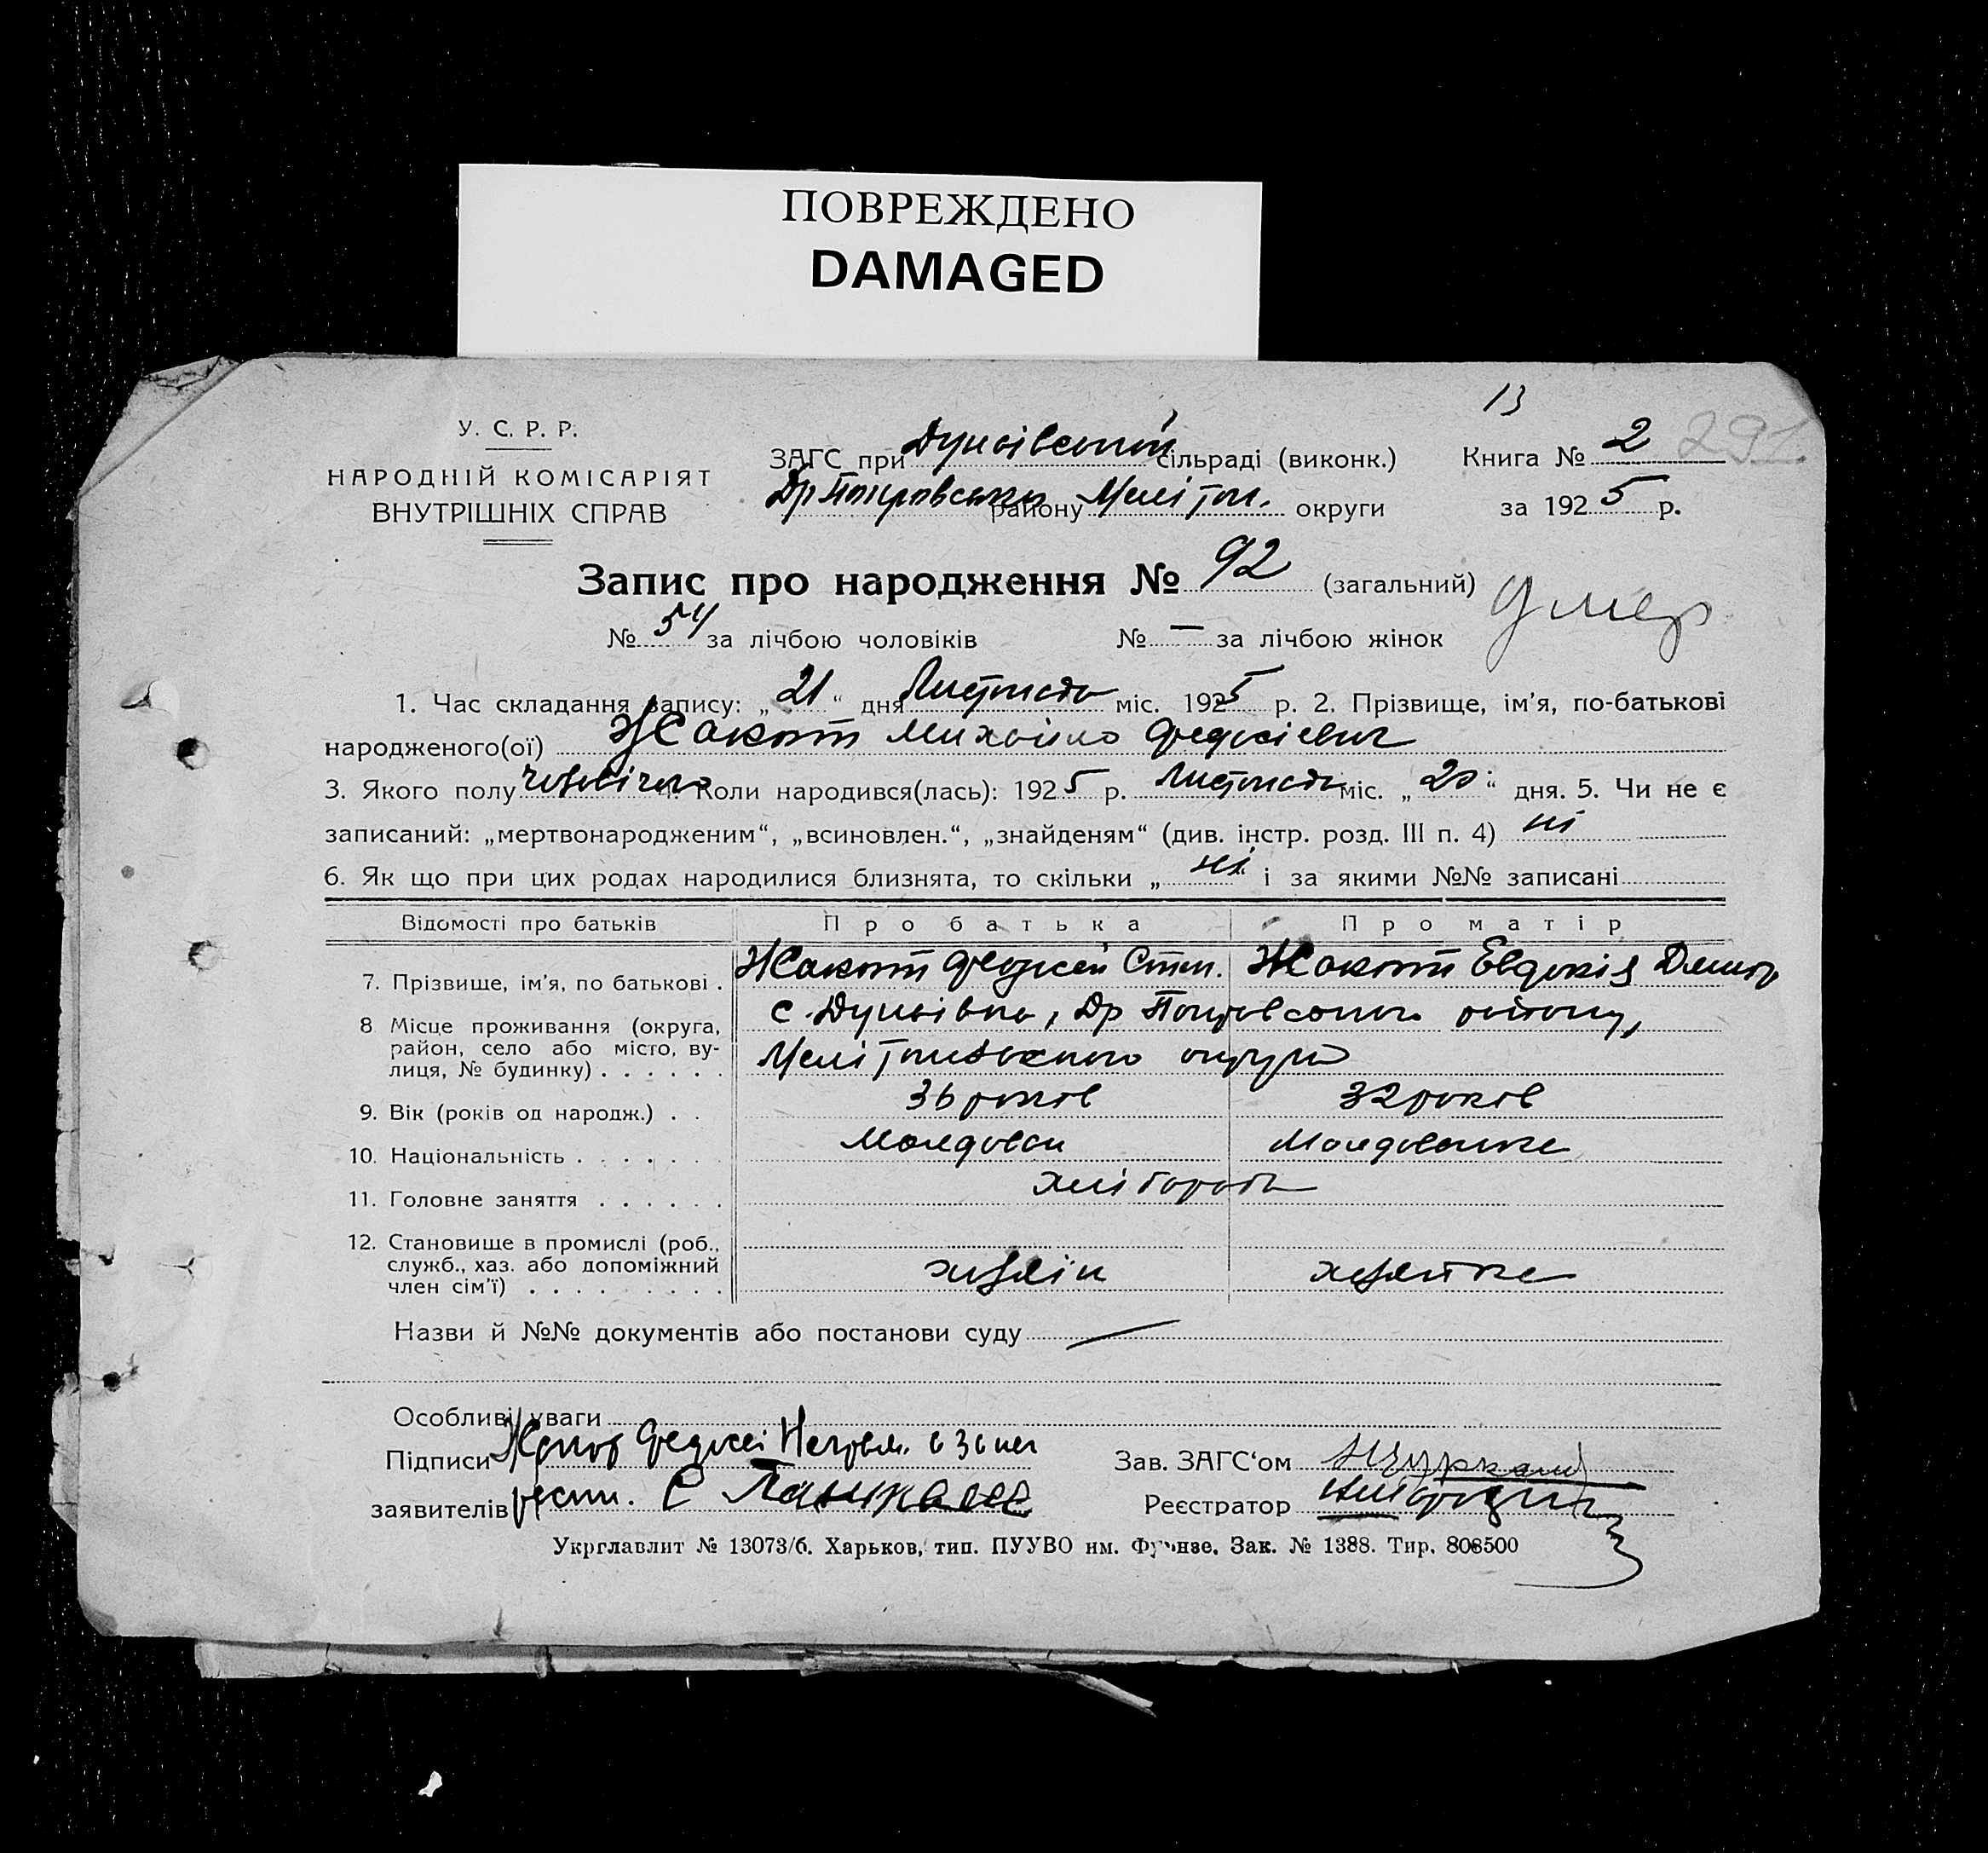 ПОВРЕЖДЕНО
DAMAGED
13
У. С. Р. Р.
НАРОДНІЙ КОМІСАРІЯТ
ВНУТРІШНІХ СПРАВ
ЗАГС при Дунаївській сільраді (виконк.)
Др Покровського району Мелітоп. округи
Книга № 2 291.
за 1925 р.
Запис про народження № 92 (загальний)
умер
№ 54 за лічбою чоловіків № — за лічбою жінок
1. Час складання запису: „21“ дня Листопада міс. 1925 р. 2. Прізвище, ім'я, по-батькові
народженого(ої) Жакот Михайло Федосієвич
3. Якого полу чоловічого 4. Коли народився(лась): 1925 р. Листопада міс. „20“ дня. 5. Чи не є
записаний: „мертвонародженим“, „всиновлен.“, „знайденям“ (див. інстр. розд. III п. 4) ні
6. Як що при цих родах народилися близнята, то скільки „ні“ і за якими №№ записані
Відомості про батьків Про батька Про матір
7. Прізвище, ім'я, по батькові . Жакот Федосей Степ. Жакот Евдокія
8 Місце проживання (округа, район, село або місто, вулиця, № будинку) . . . . . . с. Дунаівка, Др Покровського району,
Мелітопольского округи
9. Вік (років од народж.) . . 36 років 32 років
10. Національність . . . . . . . Молдован Молдованка
11. Головне заняття . . . . . . хлібороби
12. Становище в промислі (роб., служб., хаз. або допоміжний член сім'ї) . . . . . . . . . хозяін хозяйка
Назви й №№ документів або постанови суду —
Особливі уваги
Підписи Федосей
заявителів
Зав. ЗАГС‘ом
Реєстратор
Укрглавлит № 13073/б. Харьков, тип. ПУУВО им. Фрунзе. Зак. № 1388. Тир. 808500